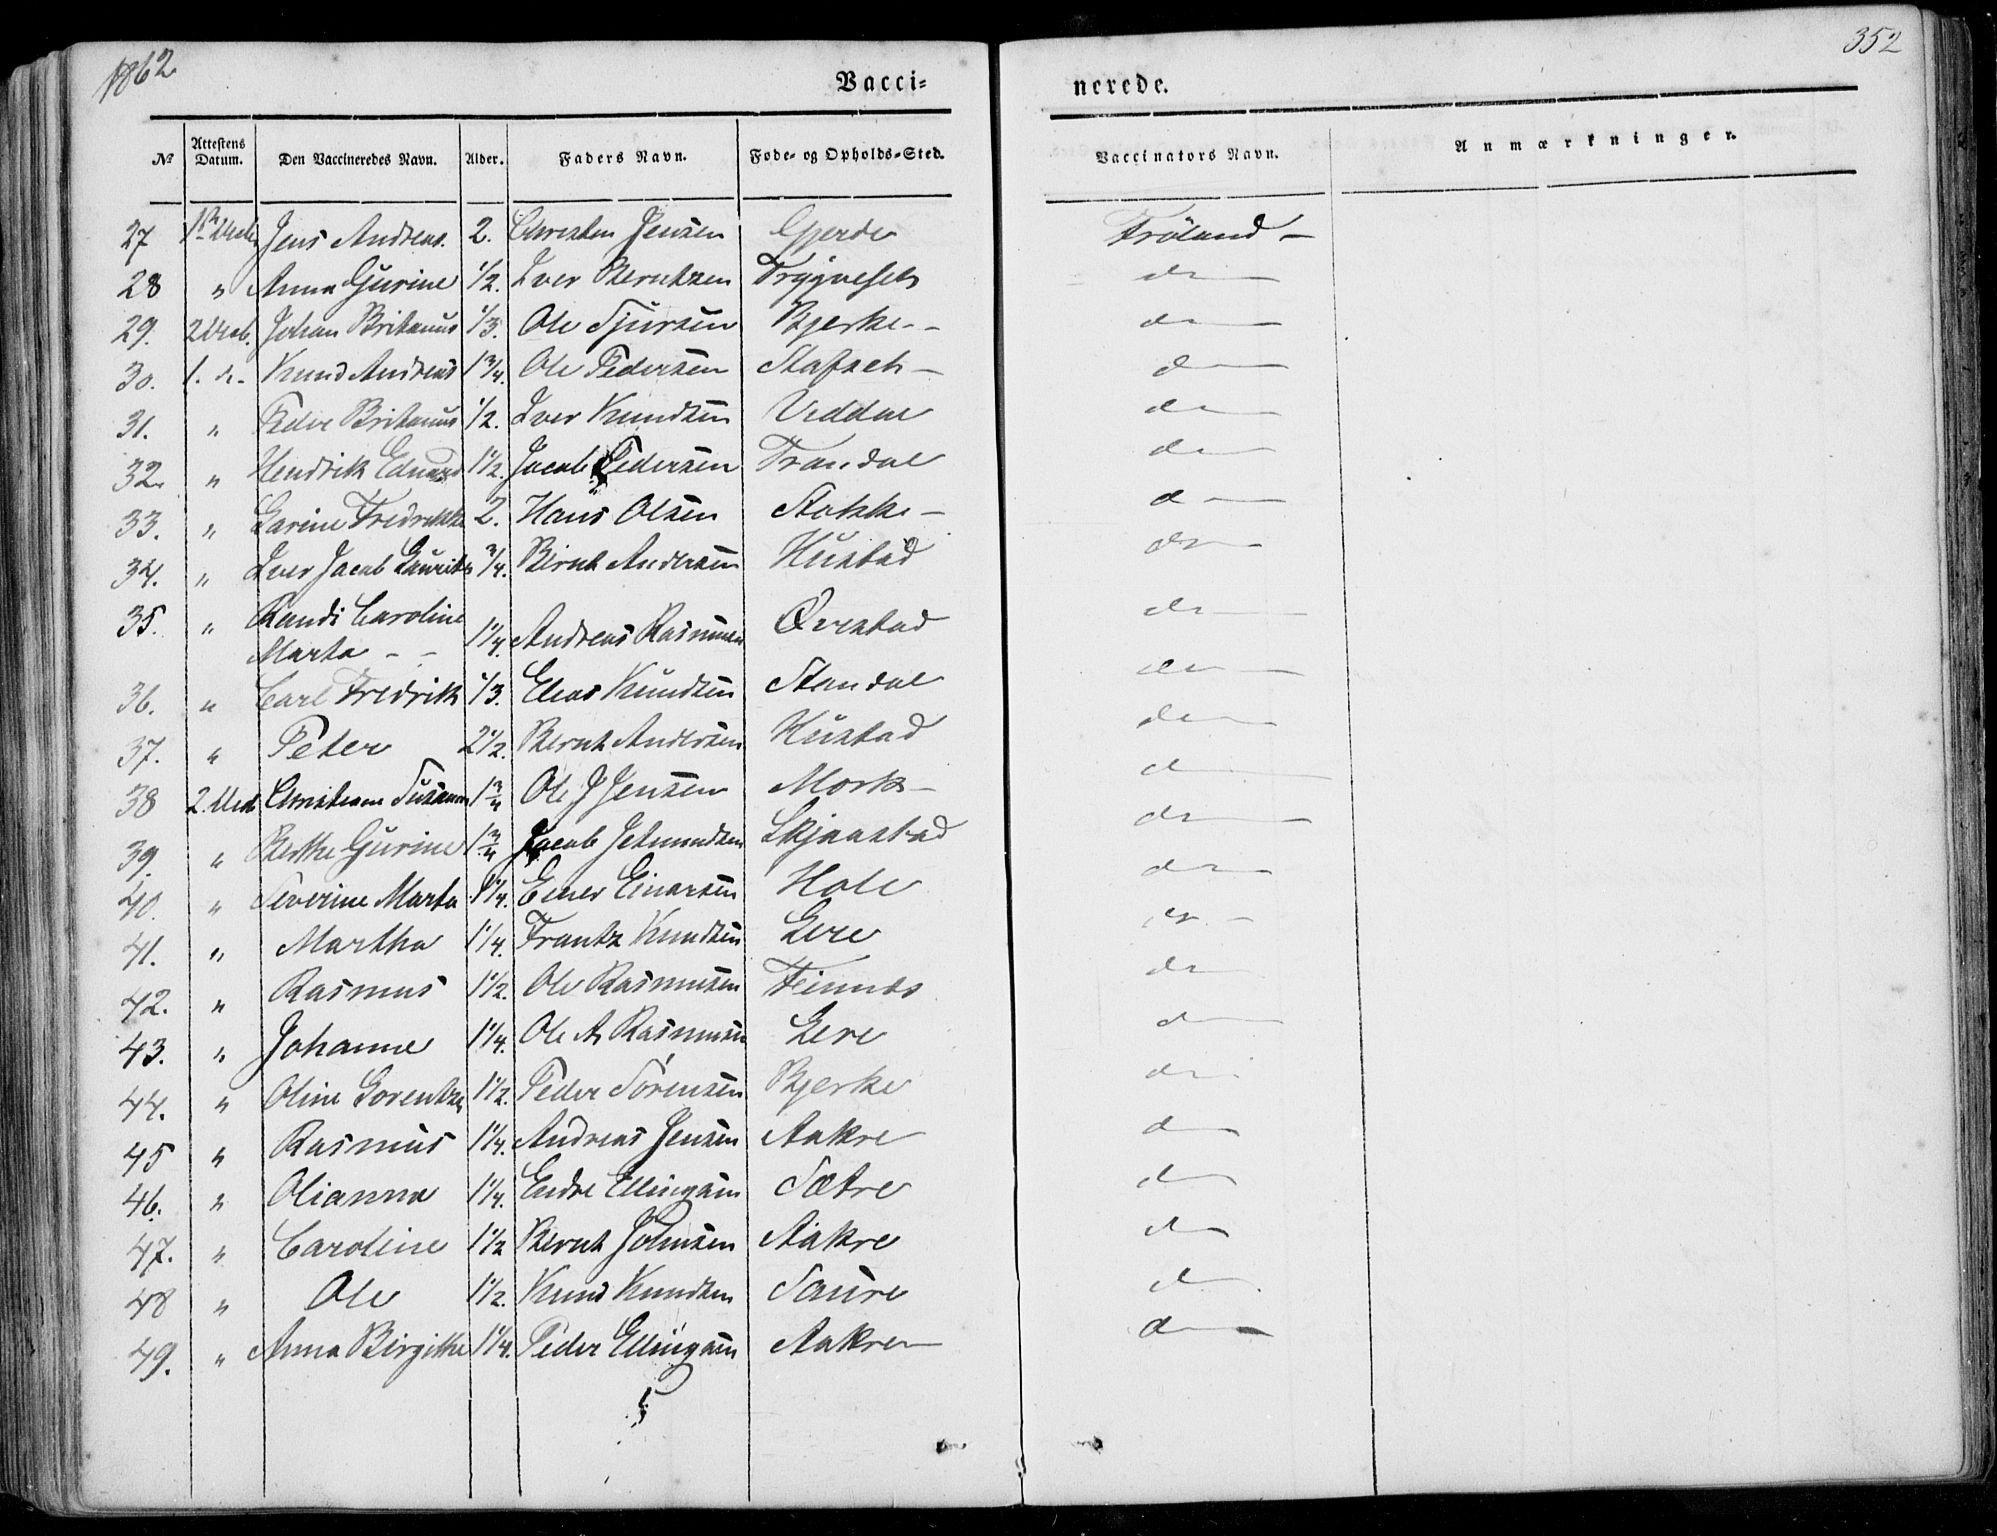 1862
352
Vacci-
nerede.
No
Attestens Datum.
Den Vaccineredes Navn.
Alder.
Faders Navn.
Føde- og Opholds-Sted.
Vaccinators Navn.
Anmærkninger.
27 Jens Andreas. 2. Christen Jensen Gjerde Fröland -
28 " Anna Gurine 1/2. Iver Berntsen Tryggeset d
29. Johan Britanus 1/3. Ole Sjursen Bjerke - d
30. 1. d - Knud Andreas 1 3/4. Ole Pedersen Stafseth - d
31. " Peder Britanus 1/2. Iver Knudsen Viddal d
32. " Hendrik Eduard 1 1/2. Jacob Pedersen Trandal d
33. " Larine Fredrikke 2. Hans Olsen Stokke - d
34. " Iver Jacob Laurits 3/4. Bernt Andersen Hustad d
35. " Randi Caroline
Marta - - 1 1/4. Andreas Rasmusen Øvrestad d
36. " Carl Fredrik 1/3. Elias Knudsen Standal d
37. " Peter 2 1/2. Bernt Andersen Hustad d
38 Susanna 1 3/4 Ole J Jensen Mork - d
39. " Berthe Gurine 1 3/4 Jacob Jetmundsen Skjaastad d
40. " Severine Marta 1 1/4. Einer Einarsen Hole d
41. " Martha 1 1/4. Frantz Knudsen Lere d
42. " Rasmus 1 1/2. Ole Rasmusen Finnes d
43. " Johanne 1 1/4. Ole A Rasmusen Lere d
44. " Oline Lorentze 1 1/2. Peder Sørensen Bjerke d
45 " Rasmus 1 1/4. Andreas Jensen Aakre d
46. " Olianna 1 1/4. Endre Ellingsen Sætre d
47. " Caroline 1 1/2 Bernt Johnsen Aakre d
48 " Ole 1 1/2. Knud Knudsen Saure d
49. " Anna Birgithe 1 1/4. Peder Ellingsen Aakre d